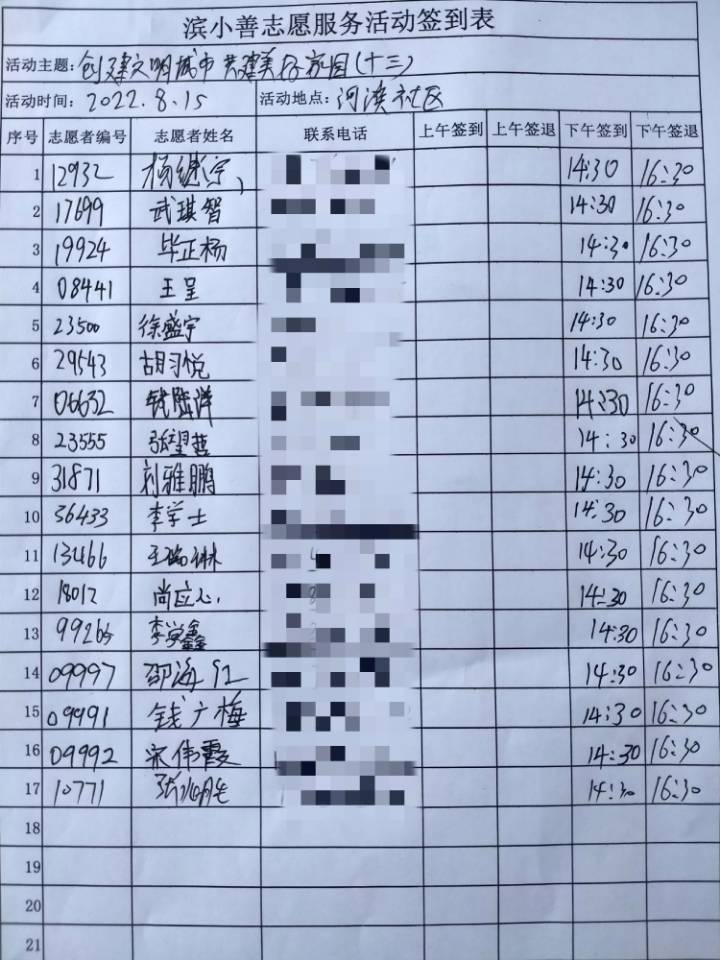 滨小善志愿服务活动签到表
活动主题: 创建文明城市 共建美好家园(十三)
活动时间: 2022.8.15 活动地点: 河滨社区
序号 志愿者编号 志愿者姓名 联系电话 上午签到 上午签退 下午签到 下午签退
1 12932 杨继宇 14:30 16:30
2 17699 武琪智 14:30 16:30
3 19924 毕正杨 14:30 16:30
4 08441 王呈 14:30 16:30
5 23500 徐盛宇 14:30 16:30
6 29543 胡习悦 14:30 16:30
7 06632 钱陆洋 14:30 16:30
8 23555 张望芸 14:30 16:30
9 31871 刘雅鹏 14:30 16:30
10 36433 李学士 14:30 16:30
11 13466 王瑞琳 14:30 16:30
12 18012 尚应心 14:30 16:30
13 99266 李学鑫 14:30 16:30
14 09997 邵海红 14:30 16:30
15 09991 钱广梅 14:30 16:30
16 09992 宋伟霞 14:30 16:30
17 10771 14:30 16:30
18
19
20
21